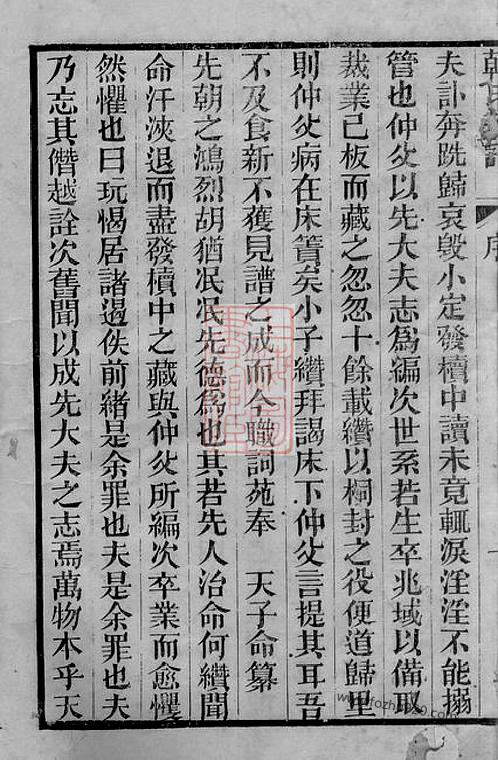 夫訃奔跣歸哀毀小定發櫝中讀未竟輒淚淫淫不能搦
管也仲父以先大夫志爲編次世系若生卒兆域以備取
裁業已板而藏之忽忽十餘載纘以桐封之役便道歸里
則仲父病在床簀矣小子纘拜謁床下仲父言提其耳吾
不及食新不獲見譜之成而今職詞苑奉　天子命纂
先朝之鴻烈胡猶泯泯先德爲也其若先人治命何纘聞
命汗浹退而盡發櫝中之藏與仲父所編次卒業而愈懼
然懼也曰玩愒居諸遏佚前緒是余罪也夫是余罪也夫
乃忘其僭越詮次舊聞以成先大夫之志焉萬物本乎天
www.fozhu920.com